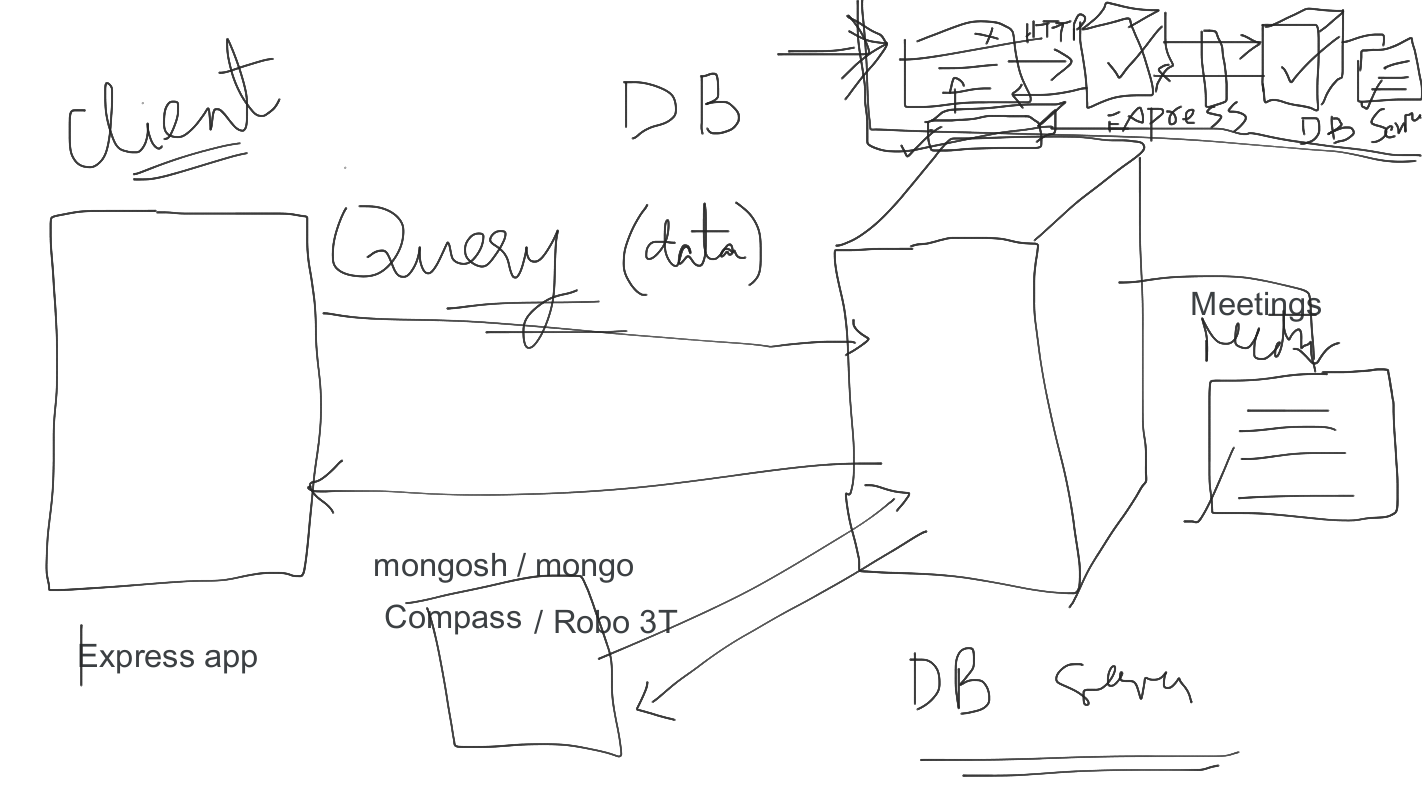 client
DB
HTTP
EXpress
DB Server
Query (data)
Meetings
mongosh / mongo
Compass / Robo 3T
Express app
DB Server